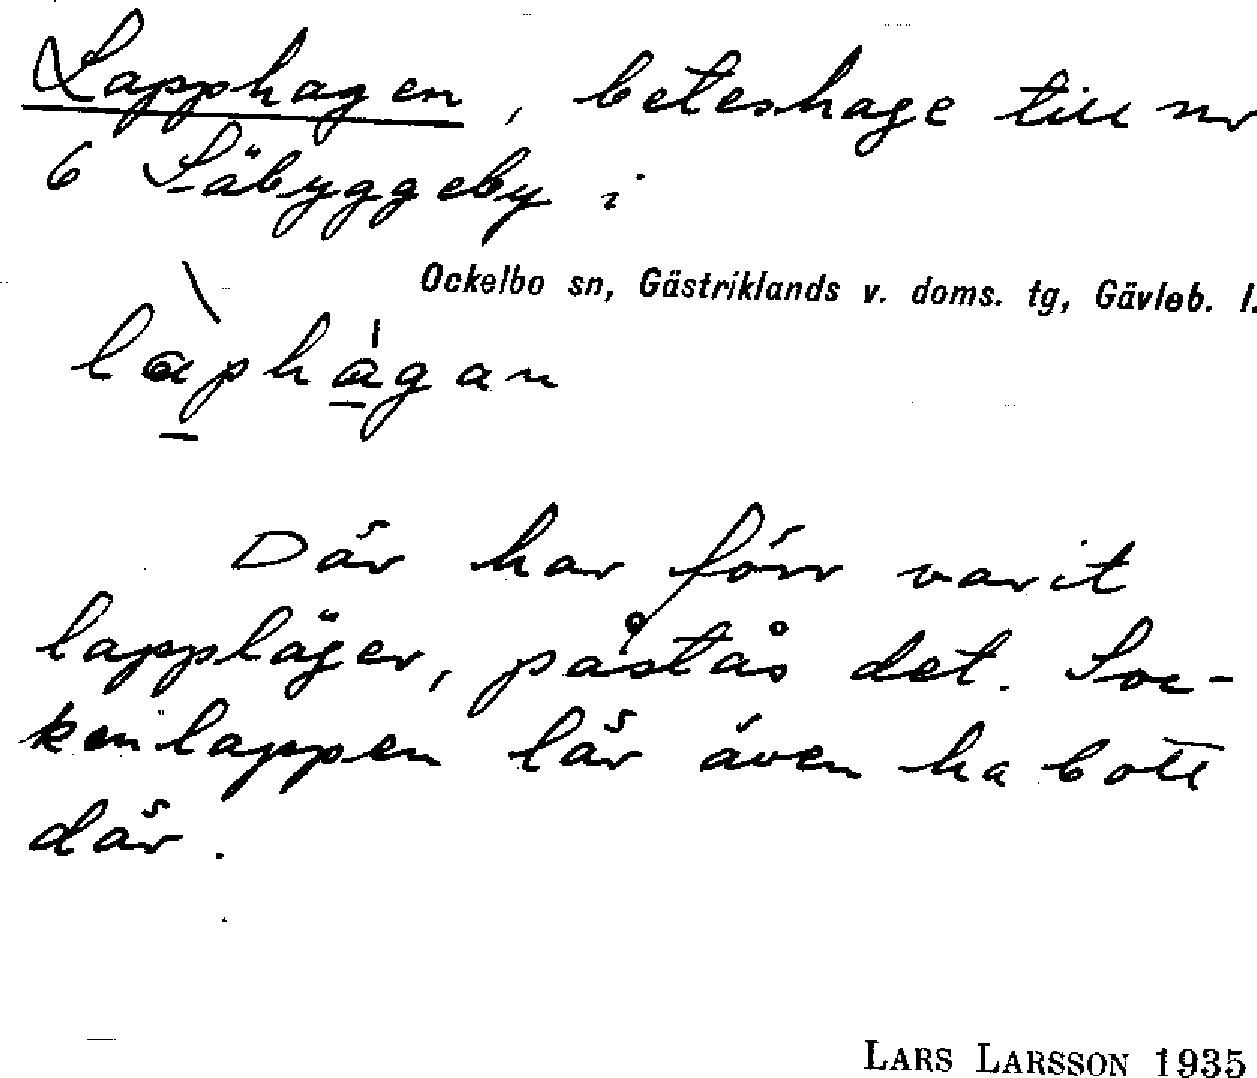 Lapphagen, beteshage till nr
6 Säbyggeby i
Ockelbo sn, Gästriklands v. doms. tg, Gävleb. l.
làphágan
Där har förr varit
lappläger, påstås det. Soc-
kenlappen lär även ha bott
där.
LARS LARSSON 1935